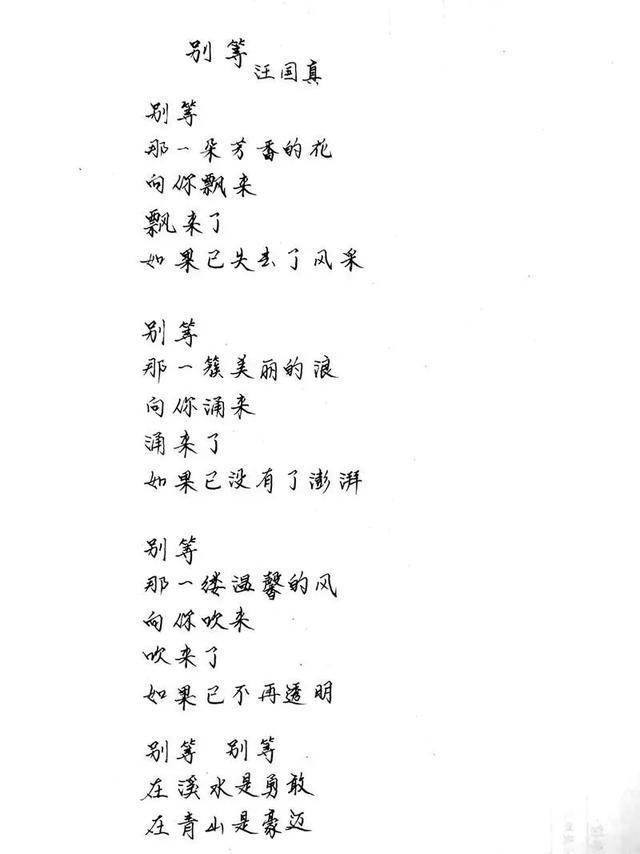 别等
汪国真
别等
那一朵芳香的花
向你飘来
飘来了
如果已失去了风采
别等
那一簇美丽的浪
向你涌来
涌来了
如果已没有了澎湃
别等
那一缕温馨的风
向你吹来
吹来了
如果已不再透明
别等 别等
在溪水是勇敢
在青山是豪迈